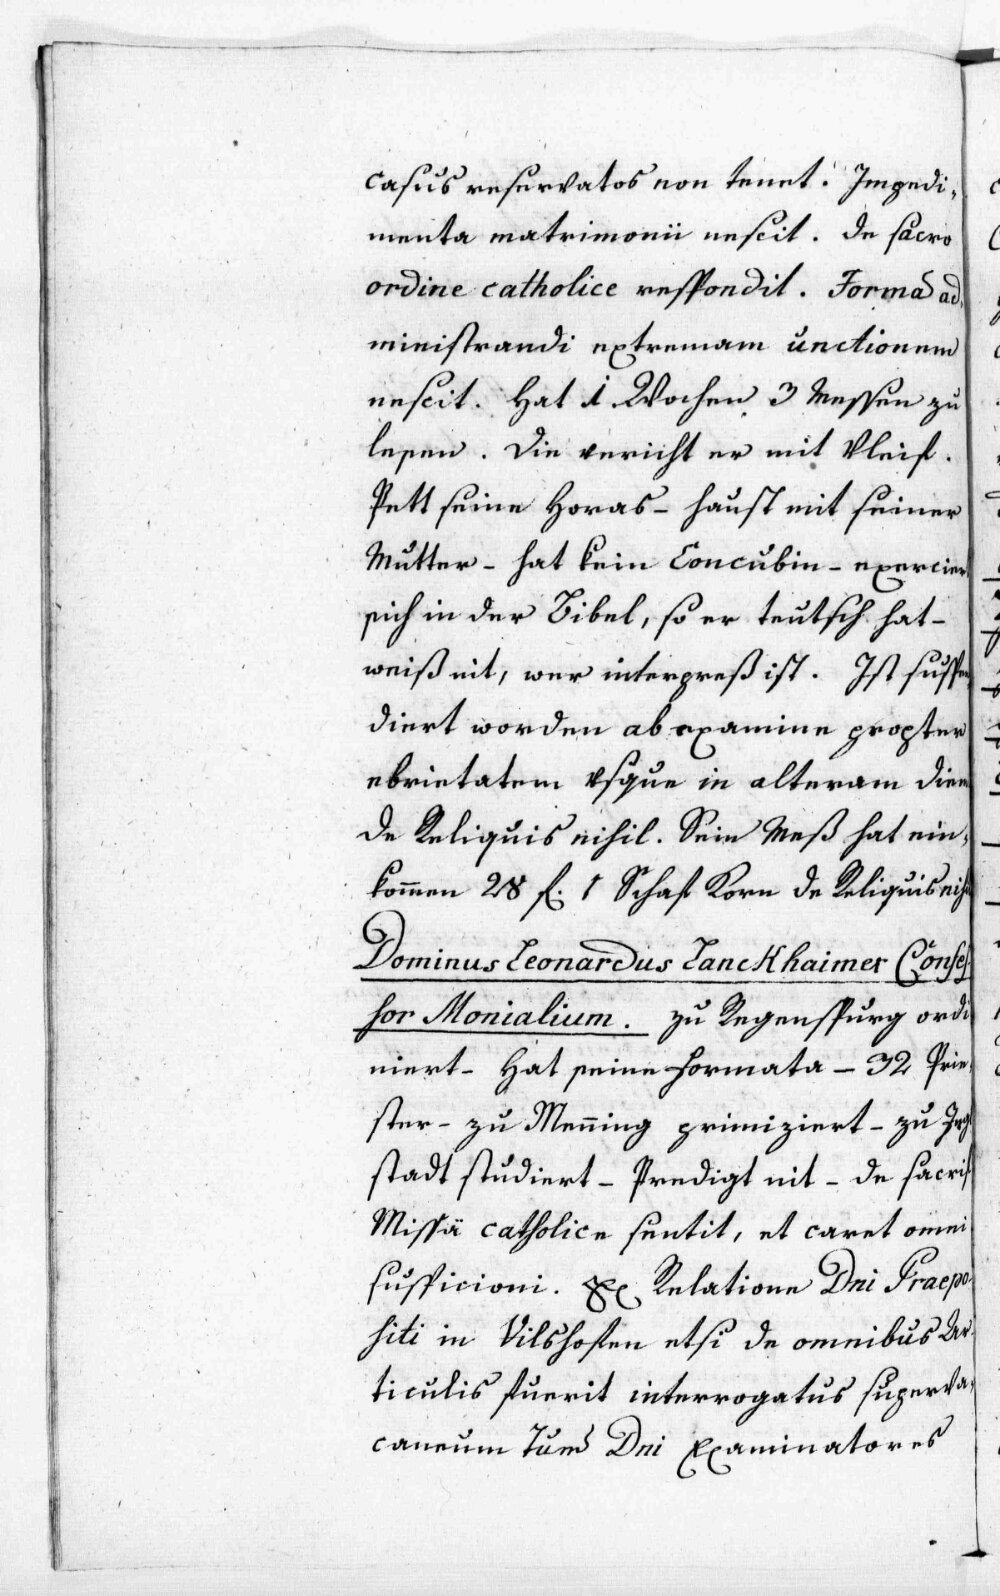 casus reservatos non tenet. Impedi-
menta matrimonii nescit. De sacro
ordine catholice respondit. Forma ad-
ministrandi extremam unctionem
nescit. Hat 1 Wochen 3 Messen zu
lesen. Die vericht er mit Vleis.
Pett seine Horas - haust mit seiner
Mutter - hat kein Concubin - exercier
sich in der Bibel, so er teutsch hat -
weiß nit, wer interpreß ist. Ist suspen
diert worden ab examine propter
ebrietatem vsque in alteram diem
De Reliquis nihil. Sein Meß hat ein-
kommen 28 f. 1 Schaf Korn De Reliquis nihil
Dominus Leonardus Lanckhaimer Confes-
sor Monialium. zu Regenspurg ordi
niert - Hat seine Formata - 32 Prie-
ster - zu Menning primiziert - zu Ing
stadt studiert - Predigt nit - De sacrif
Missä catholice sentit, et caret omni
suspicioni. Ex Relatione Dni Praepo-
siti in Vilshofen etsi de omnibus Ar-
ticulis fuerit interrogatus superva-
caneum Tum Dni Examinatores